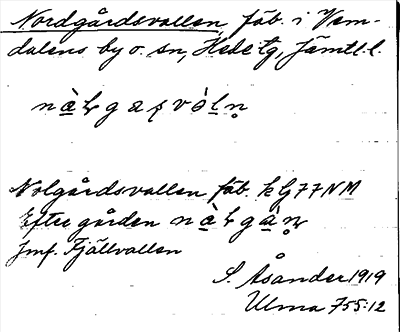 Nordgårdsvallen, fäb. i Vem-
dalens by o. sn, Hede tg, Jämtl. l.
Nolgårdsvallen fäb. kG77NM
Efter gården
Jmf. Fjällvallen
S. Åsander 1919
Ulma 755:12